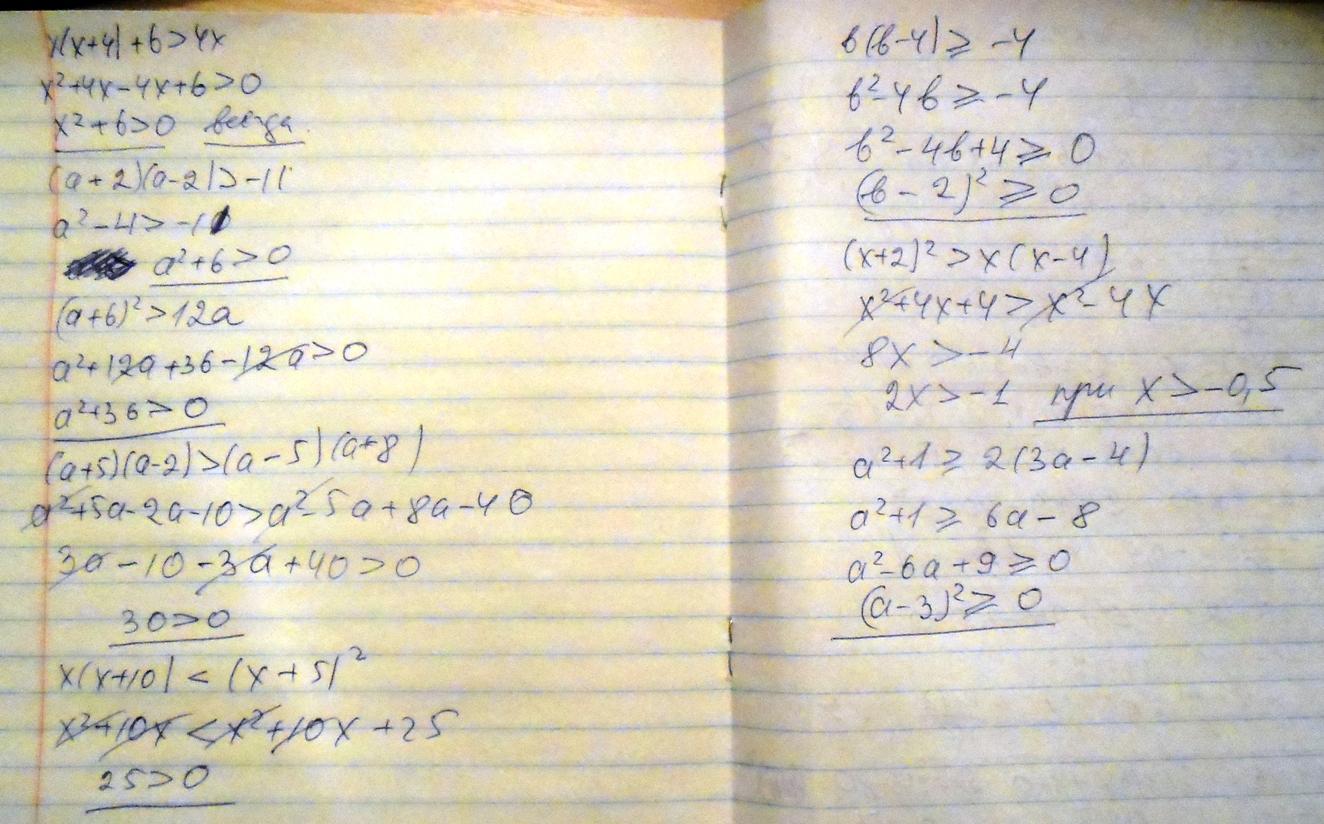 x(x+4)+6>4x
x²+4x-4x+6>0
x²+6>0 всегда.
(a+2)(a-2)>-11
a²-4>-10
a²+6>0
(a+6)²>12a
a²+12a+36-12a>0
a²+36>0
(a+5)(a-2)>(a-5)(a+8)
a²+5a-2a-10>a²-5a+8a-40
3a-10-3a+40>0
30>0
x(x+10)<(x+5)²
x²+10x<x²+10x+25
25>0
в(в-4)≥-4
в²-4в≥-4
в²-4в+4≥0
(в-2)²≥0
(x+2)²>x(x-4)
x²+4x+4>x²-4x
8x>-4
2x>-1 при x>-0,5
a²+1≥2(3a-4)
a²+1≥6a-8
a²-6a+9≥0
(a-3)²≥0